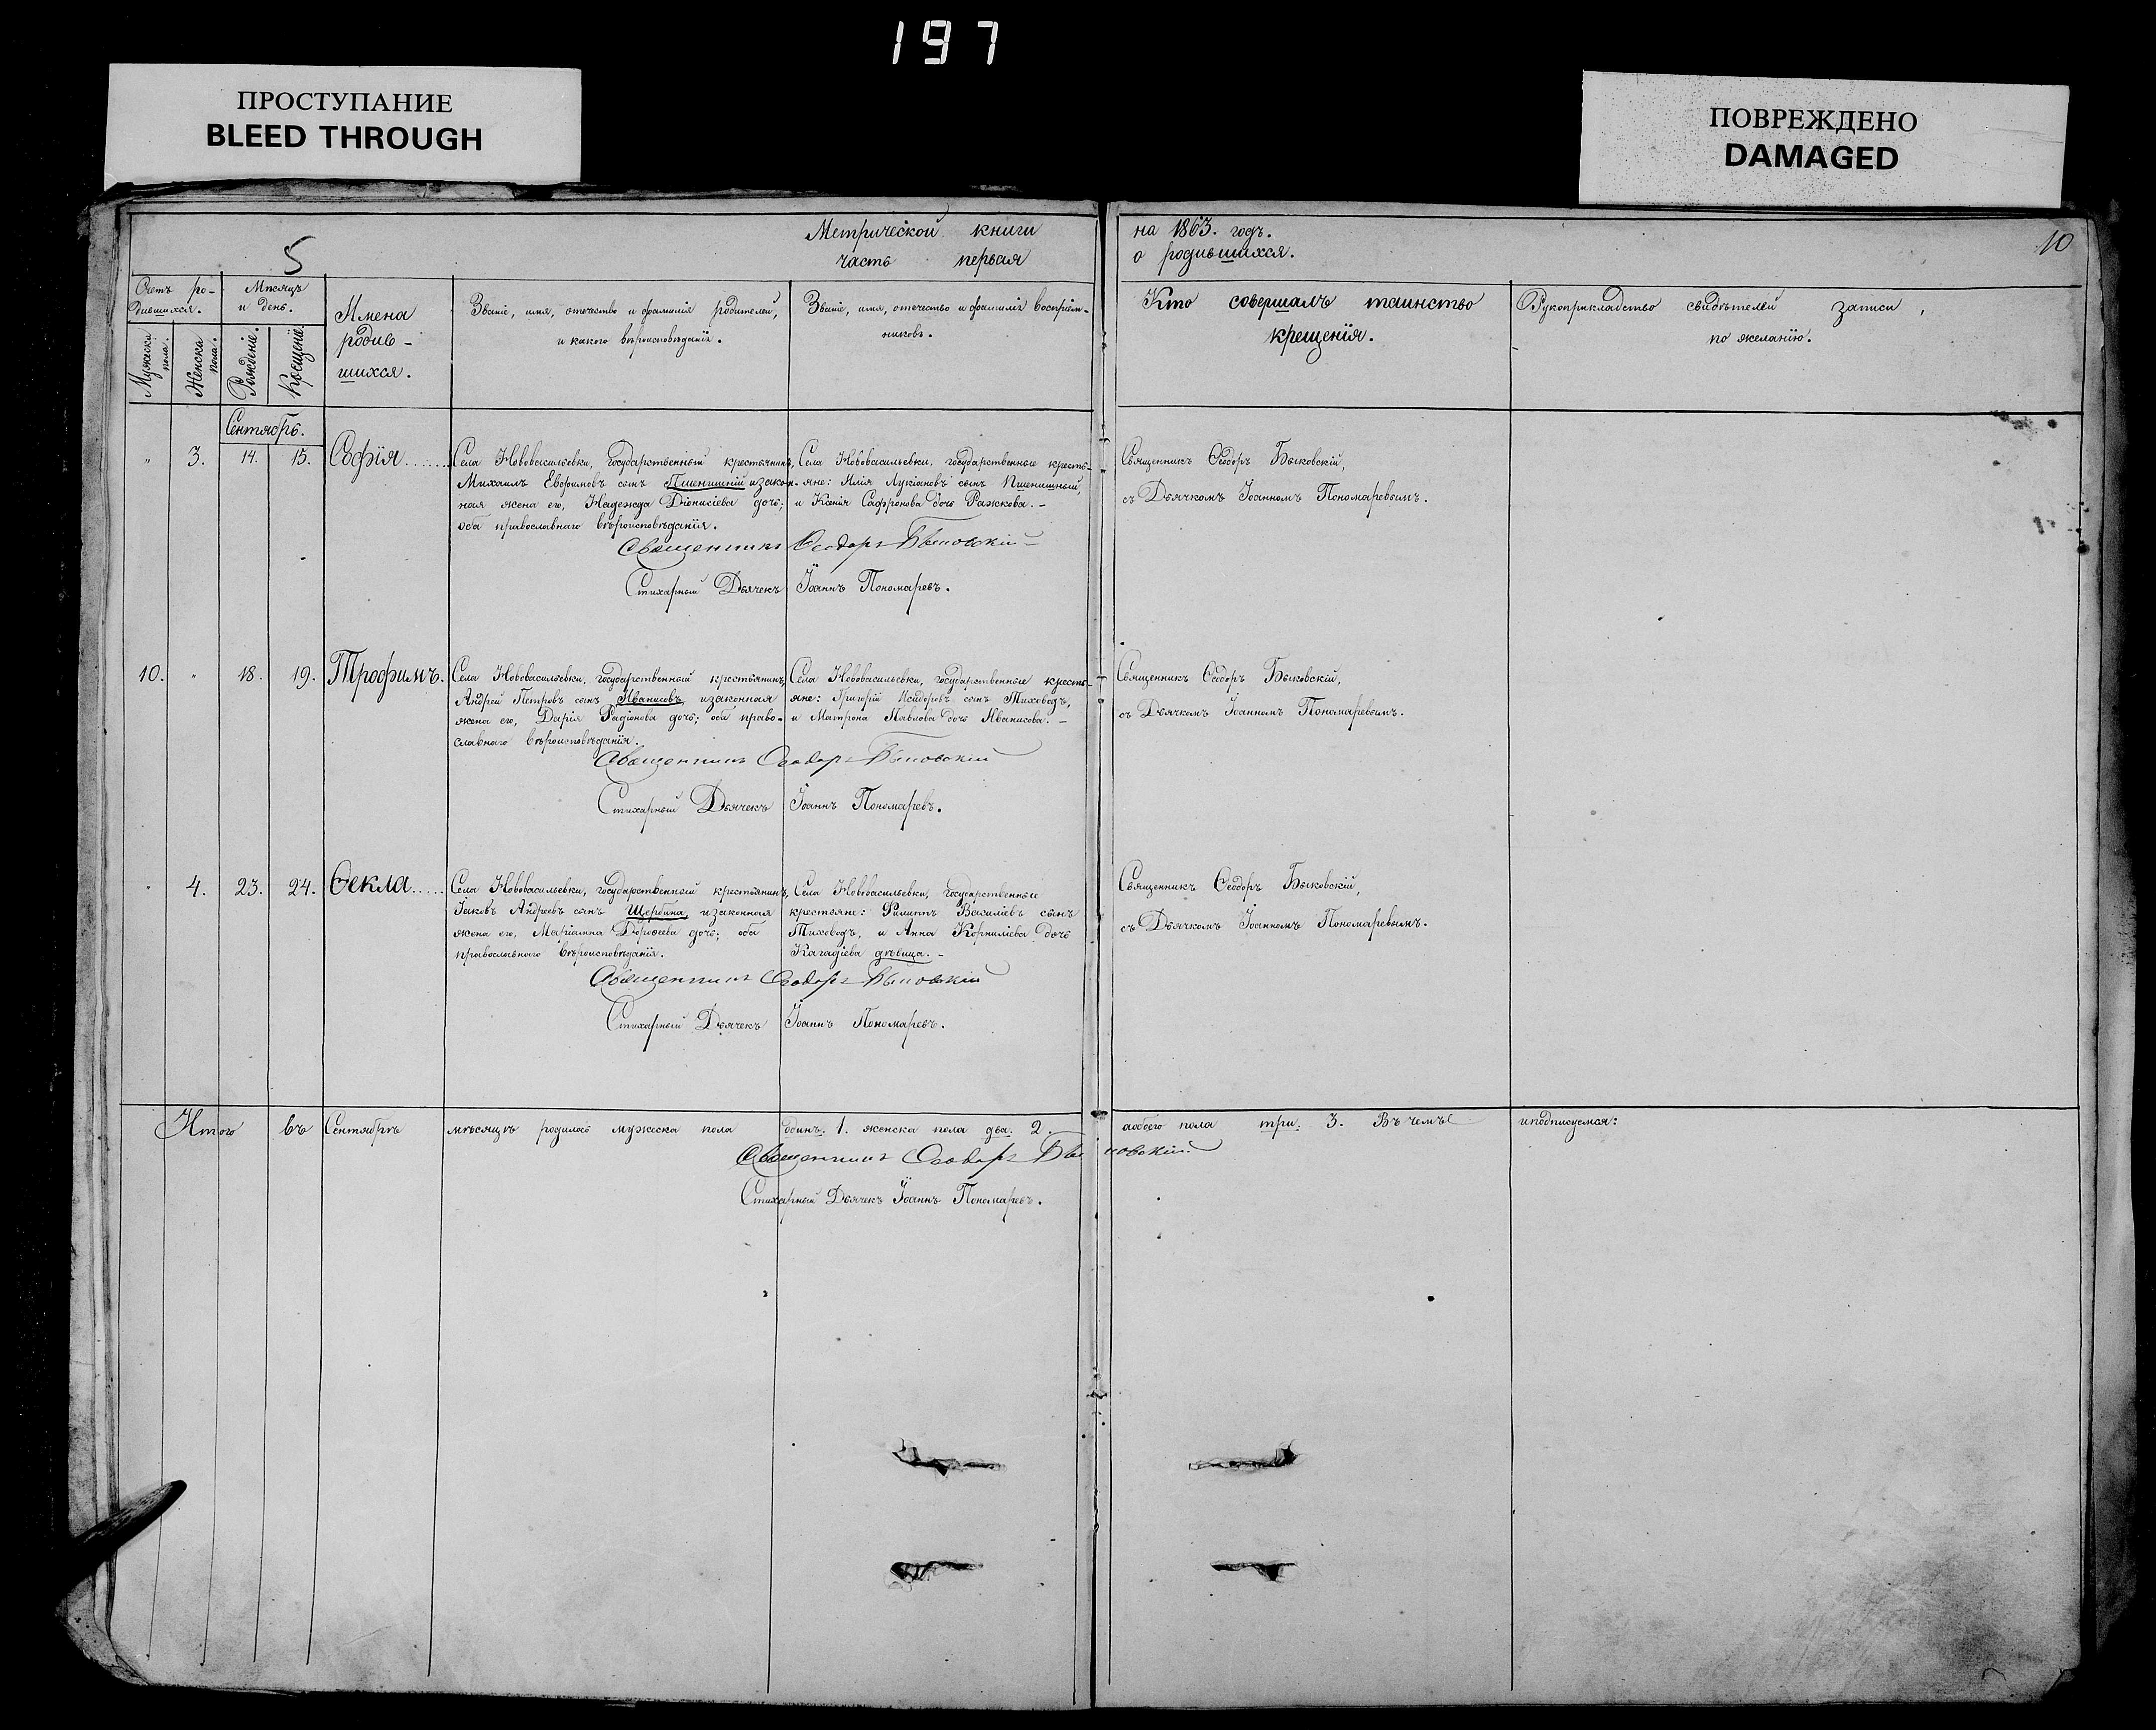 197
ПРОСТУПАНИЕ
BLEED THROUGH
ПОВРЕЖДЕНО
DAMAGED
5
Метрической книги
часть первая
на 1863. годъ.
о родившихся.
10
Счетъ ро-
дившихся.
Мужеска пола.
Женска пола.
Мѣсяцъ
и день.
Рожденіе.
Крещеніе.
Имена
родив-
шихся.
Званіе, имя, отечество и фамилія родителей,
и какого вѣроисповѣданія.
Званіе, имя, отечество и фамилія воспріем-
никовъ.
Кто совершалъ таинство
крещенія.
Рукоприкладство свидѣтелей записи,
по желанію.
Сентябрь.
" 3. 14. 15. Софія.......
Села Нововасильевки, государственный крестьянинъ,
Михаилъ Евфимовъ сынъ Пшенишній и закон-
ная жена его, Надежда Діонисіева дочь;
оба православнаго вѣроисповѣданія.
Села Нововасильевки, государственные кресть-
яне: Илія Лукіановъ сынъ Пшенишный,
и Ксенія Сафронова дочь Ражкова. -
Священникъ Ѳеодоръ Быковскій,
съ Дьячкомъ Іоанномъ Пономаревымъ.
Священникъ Ѳеодоръ Быковскій
Стихарный Дьячекъ Іоаннъ Пономаревъ.
10. " 18. 19. Трофимъ.
Села Нововасильевки, государственный крестьянинъ,
Андрей Петровъ сынъ Иванисовъ, и законная
жена его, Дарія Радіонова дочь; оба право-
славнаго вѣроисповѣданія.
Села Нововасильевки, государственные кресть-
яне: Григорій Исидоровъ сынъ Тиховодъ,
и Матрона Павлова дочь Иванисова. -
Священникъ Ѳеодоръ Быковскій,
съ Дьячкомъ Іоанномъ Пономаревымъ.
Священникъ Ѳеодоръ Быковскій
Стихарный Дьячекъ Іоаннъ Пономаревъ.
" 4. 23. 24. Ѳекла.....
Села Нововасильевки, государственный крестьянинъ,
Іаковъ Андреевъ сынъ Щербина, и законная
жена его, Маріамна Дороѳеева дочь; оба
православнаго вѣроисповѣданія.
Села Нововасильевки, государственные
крестьяне: Филиппъ Василіевъ сынъ
Тиховодъ, и Анна Корниліева дочь
Кагадіева дѣвица. -
Священникъ Ѳеодоръ Быковскій,
съ Дьячкомъ Іоанномъ Пономаревымъ.
Священникъ Ѳеодоръ Быковскій
Стихарный Дьячекъ Іоаннъ Пономаревъ.
Итого въ Сентябрѣ мѣсяцѣ родилось мужеска пола одинъ. 1. женска пола два. 2. а обоего пола три. 3. Въ чемъ и подписуемся:
Священникъ Ѳеодоръ Быковскій
Стихарный Дьячекъ Іоаннъ Пономаревъ.